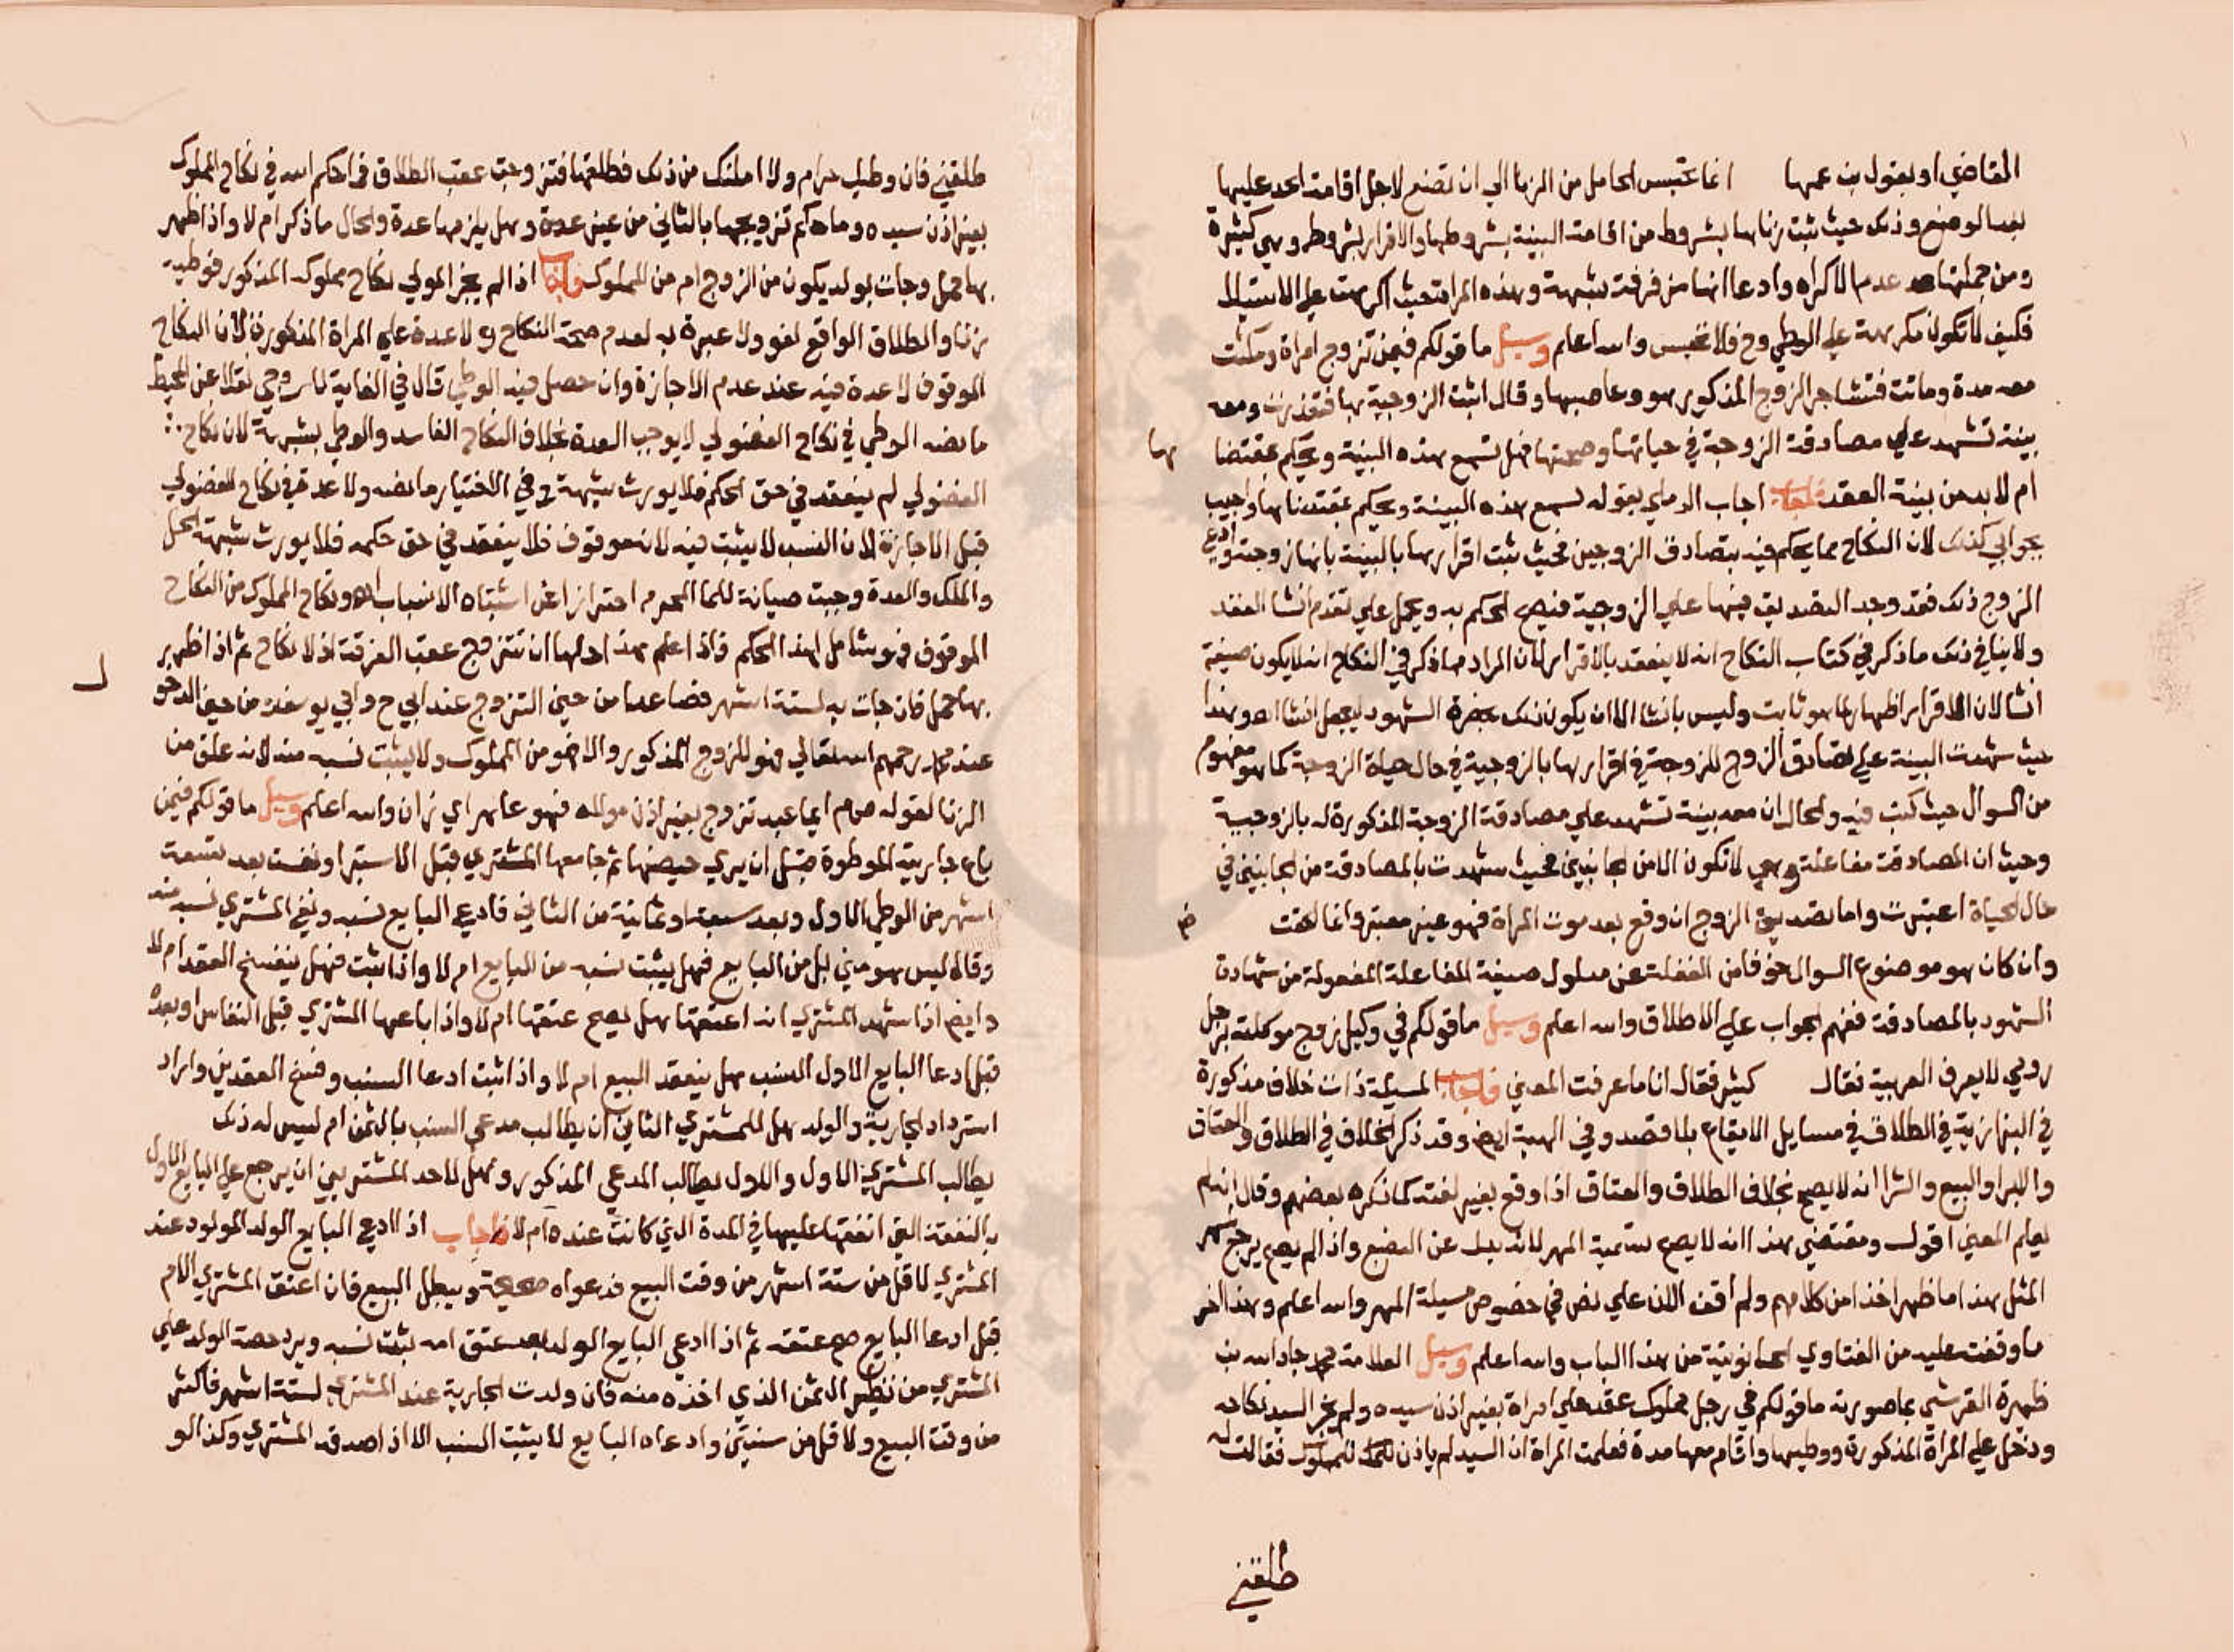 القاضي او بقول بن عمها انما تحتبس الحامل من الزنا الي ان تضع لاجل اقامة الحد عليها
بعد الوضع وذلك حيث ثبت زناها بشروط من اقامة البينة بشروطها والاقرار بشروطه وهي كثيرة
ومن جملتها عدم الاكراه وادعا انها من فرقت شبهة وهذه المراة حيث اكرهت علي الاستيلا
فكيف لا تكون مكرهة علي الوطي وح فلا تحبس والله اعلم وسيل ما قولكم فيمن تزوج امراة ومكثت
معه مدة وماتت فتشاجر الزوج المذكور هو وعاصبها وقال اثبت الزوجية بها فتعذرت ومعه
بينة تشهد علي مصادقة الزوجة في حياتها وصحتها فهل تسمع هذه البينة ويحكم بمقتضاها
ام لا بد من بينة العقد فاجاب اجاب الرملي بقوله تسمع هذه البينة ويحكم بمقتضاها واجيب
بجوابي كذلك لان النكاح مما يحكم فيه بتصادق الزوجين فحيث ثبت اقرارها بالبينة بانها زوجته وادعي
الزوج ذلك فقد وجد التصديق فيها علي الزوجية فيصح الحكم به ويحمل علي تقدم انشا العقد
ولا ينافي ذلك ما ذكر في كتاب النكاح انه لا ينعقد بالاقرار لان المراد مما ذكر في النكاح انه لا يكون صيغة
انشا لان الاقرار اظهار لما هو ثابت وليس بانشا الا ان يكون ذلك بحضرة الشهود ليجعل انشا اهـ وهذا
حيث شهدت البينة علي تصادق الزوج للزوجة في اقرارها بالزوجية في حال حياة الزوجة كما هو مفهوم
من السوال حيث كتب فيه والحال ان معه بينة تشهد علي مصادقة الزوجة المذكورة له بالزوجية
وحيث ان المصادقة مفاعلة وهي لا تكون الا من الجانبين فحيث شهدت بالمصادقة من الجانبين في
حال الحياة اعتبرت واما تصديق الزوج ان وقع بعد موت المراة فهو غير معتبر وانما لحقت
وان كان هو موضوع السوال خوفا من الغفلة عن مدلول صيغة المفاعلة المفعولة من شهادة
الشهود بالمصادقة ففهم الجواب علي الاطلاق والله اعلم وسيل ما قولكم في وكيل زوج موكلته برجل
رومي لا يعرف العربية فقال كيثر فقال انا ما عرفت المعني فاجاب المسيلة ذات خلاف مذكورة
في البزازية في الطلاق في مسايل الايقاع بلا قصد وفي الهبة ايض وقد ذكر الخلاف في الطلاق والعتاق
والابرا والبيع والشرا انه لا يصح بخلاف الطلاق والعتاق اذا وقع بغير لغته كما ذكره بعضهم وقال ان لم
يعلم المعني اقول ومقتضي هذا انه لا يصح تسمية المهر لانه بدل عن البضع واذا لم يصح يرجع
المثل هذا ما ظهر اخذا من كلامهم ولم اقف الان علي نص في خصوص مسيلة المهر والله اعلم وهذا اخر
ما وقفت عليه من الفتاوي الحانوتية من هذا الباب والله اعلم وسيل العلامة محمد جار الله بن
ظهيرة القرشي بما صورته ما قولكم في رجل مملوك عقد علي امراة بغير اذن سيده ولم يجز السيد نكاحه
ودخل علي المراة المذكورة ووطيها واقام معها مدة فعلمت المراة ان السيد لم ياذن للمملوك فقالت له
طلقني
طلقني فان وطيك حرام ولا املنك من ذلك فطلقها فتزوجت عقب الطلاق فما حكم الله في نكاح المملوك
بغير اذن سيده وما حكم تزويجها بالثاني من غير عدة وهل يلزمها عدة والحال ما ذكر ام لا واذا ظهر
بها حمل وجات بولد يكون من الزوج ام من المملوك فاجاب اذا لم يجز المولي نكاح مملوكه المذكور فوطيه
زنا والطلاق الواقع لغو ولا عبرة به لعدم صحة النكاح ولا عدة علي المراة المذكورة لان النكاح
الموقوف لا عدة فيه عند عدم الاجازة وان حصل فيه الوطي قال في الغاية للسروجي نقلا عن المحيط
ما نصه الوطي في نكاح الفضولي لا يوجب العدة بخلاف النكاح الفاسد والوطي بشبهة لان نكاح
الفضولي لم ينعقد في حق الحكم فلا يورث شبهة وفي الاختيار ما نصه ولا عدة في نكاح الفضولي
قبل الاجازة لان النسب لا يثبت فيه لانه موقوف فلا ينعقد في حق حكمه فلا يورث شبهة الحل
والملك والعدة وجبت صيانة للما المحرم احترازا عن اشتباه الانساب اهـ ونكاح المملوك من النكاح
الموقوف فهو شامل لهذا الحكم واذا علم هذا لها ان تتزوج عقب الفرقة اذ لا نكاح ثم اذا ظهر
بها حمل فان جات به لستة اشهر فصاعدا من حين التزوج عند ابي ح وابي يوسف ومن حين الدخول
عند محمد رحمهم الله تعالي فهو للزوج المذكور والا فهو من المملوك ولا يثبت نسبه منه لانه علق من
الزنا لقوله صلعم ايما عبد تزوج بغير اذن مولاه فهو عاهر اي زان والله اعلم وسيل ما قولكم فيمن
باع جاريته الموطوة قبل ان يري حيضها ثم جامعها المشتري قبل الاستبرا ونفست بعد تسعة
اشهر من الوطي الاول وبعد سبعة او ثمانية من الثاني فادعي البايع نسبه ونفي المشتري نسبه منه
وقال ليس هو مني بل من البايع فهل يثبت نسبه من البايع ام لا واذا ثبت فهل ينفسخ العقد ام لا
وايض اذا شهد المشتري انه اعتقها هل يصح عتقها ام لا واذا باعها المشتري قبل النفاس او بعده
قبل ادعا البايع الاول النسب هل ينعقد البيع ام لا واذا ثبت ادعا النسب وفسخ العقدين واراد
استرداد الجارية والولد هل للمشتري الثاني ان يطالب مدعي النسب بالثمن ام ليس له ذلك
يطالب المشتري الاول والاول يطالب المدعي المذكور وهل لاحد المشتريين ان يرجع علي البايع الاول
بالنفقة التي انفقها عليها في المدة الذي كانت عنده ام لا فاجاب اذا ادعي البايع الولد المولود عند
المشتري لاقل من ستة اشهر من وقت البيع فدعواه صحيحة ويبطل البيع فان اعتق المشتري الام
قبل ادعا البايع صح عتقه ثم اذا ادعي البايع الولد بعد عتق امه يثبت نسبه ويرد حصة الولد علي
المشتري من نظير الثمن الذي اخذه منه فان ولدت الجارية عند المشتري لستة اشهر فاكثر
من وقت البيع ولاقل من سنتين وادعاه البايع لا يثبت النسب الا اذا صدقه المشتري وكذا لو